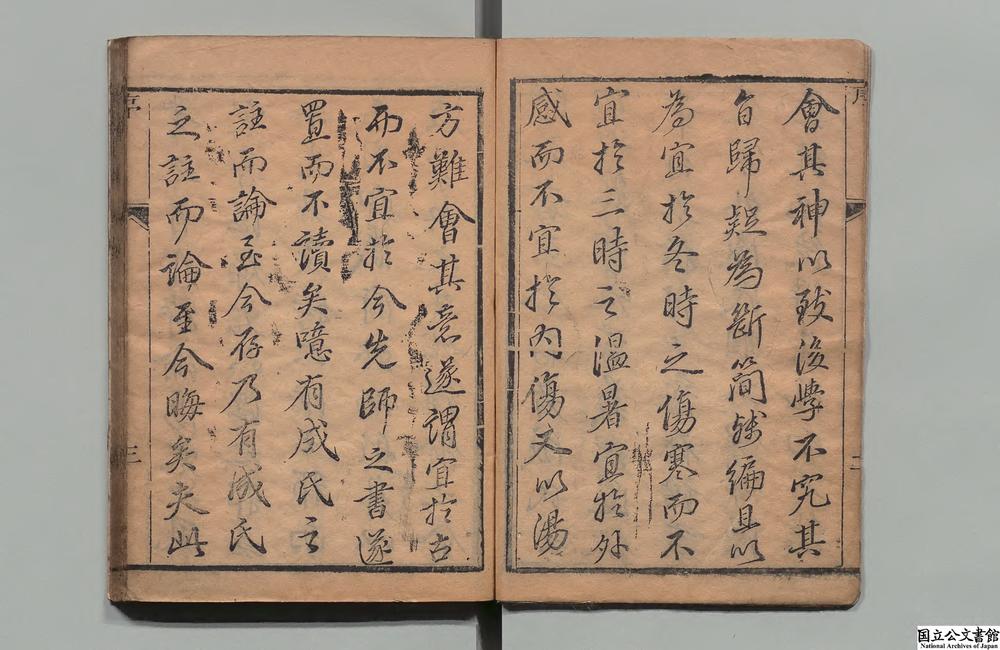 會其神以致後學不究其
旨歸疑為斷簡殘編且以
為宜於冬時之傷寒而不
宜於三時之溫暑宜於外
感而不宜於內傷又以湯
方難會其意遂謂宜於古
而不宜於今先師之書遂
置而不讀矣噫有成氏之
註而論至今存乃有成氏
之註而論至今晦矣夫此
序
三
序
二
国立公文書館
National Archives of Japan